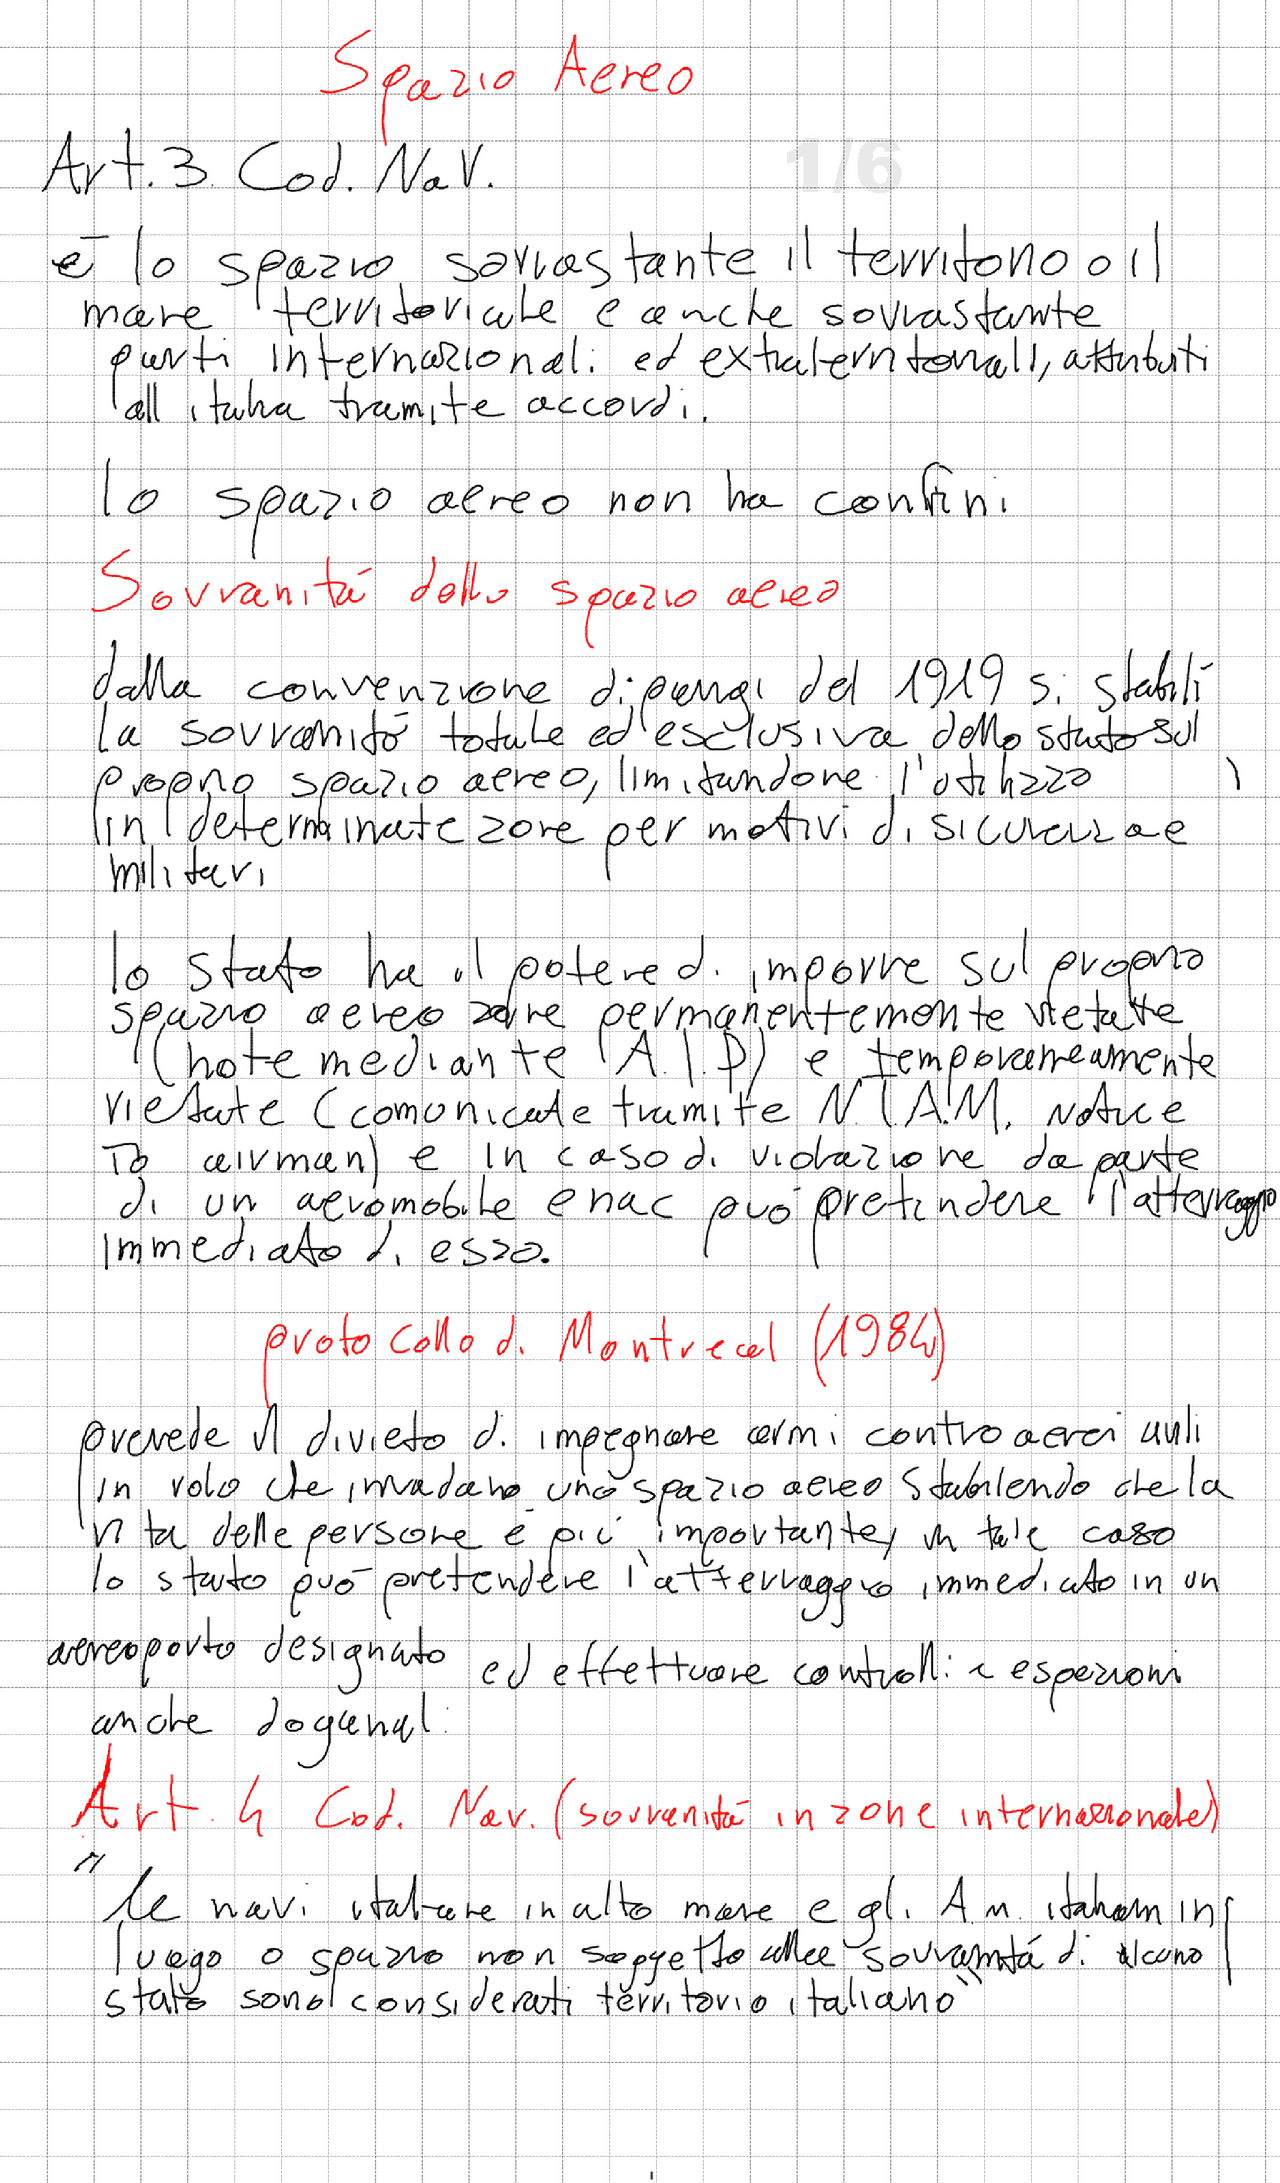 Spazio Aereo
Art. 3 Cod. Nav.
1/6
è lo spazio sovrastante il territorio o il
mare territoriale e anche sovrastante
parti internazionali ed extraterritoriali, attribuiti
all italia tramite accordi.
lo spazio aereo non ha confini
Sovranitá dello spazio aereo
dalla convenzione di parigi del 1919 si stabilì
la sovranitá totale ed esclusiva dello stato sul
proprio spazio aereo, limitandone l'utilizzo
in determinate zone per motivi di sicurezza e
militari
lo stato ha il potere di imporre sul proprio
spazio aereo zone permanentemente vietate
(note mediante A.I.P) e temporaneamente
vietate (comunicate tramite N.T.A.M. notice
To airman) e in caso di violazione da parte
di un aeromobile enac può pretindere l'atterraggio
immediato di esso.
protocollo di Montreal (1984)
prevede il divieto di impegnare armi contro aerei
in volo che invadano uno spazio aereo stabilendo che la
vita delle persone è più importante, in tale caso
lo stato può pretendere l'atterraggio immediato in un
aereoporto designato ed effettuare controlli e espezioni
anche doganali
Art. 4 Cod. Nav. (sovranitá in zone internazionale)
"le navi italiane in alto mare e gli A.m. italiani in
luogo o spazio non soggetto alla sovranitá di alcuno
stato sono considerati territorio italiano"